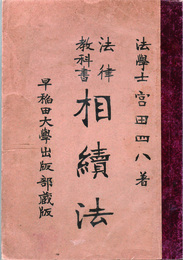 法學士 宮田四八 著
法律教科書
相續法
早稲田大學出版部蔵版